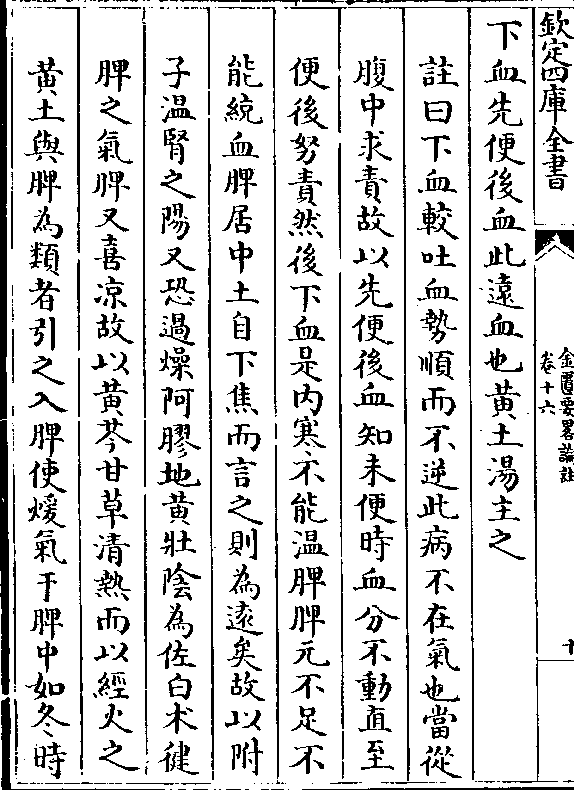 欽定四庫全書
金匱要畧論註
卷十六
十
下血先便後血此遠血也黄土湯主之
註曰下血較吐血勢順而不逆此病不在氣也當從
腹中求責故以先便後血知未便時血分不動直至
便後努責然後下血是内寒不能温脾脾元不足不
能統血脾居中土自下焦而言之則為遠矣故以附
子温腎之陽又恐過燥阿膠地黄壯陰為佐白术健
脾之氣脾又喜凉故以黄芩甘草清熱而以經火之
黄土與脾為類者引之入脾使煖氣于脾中如冬時